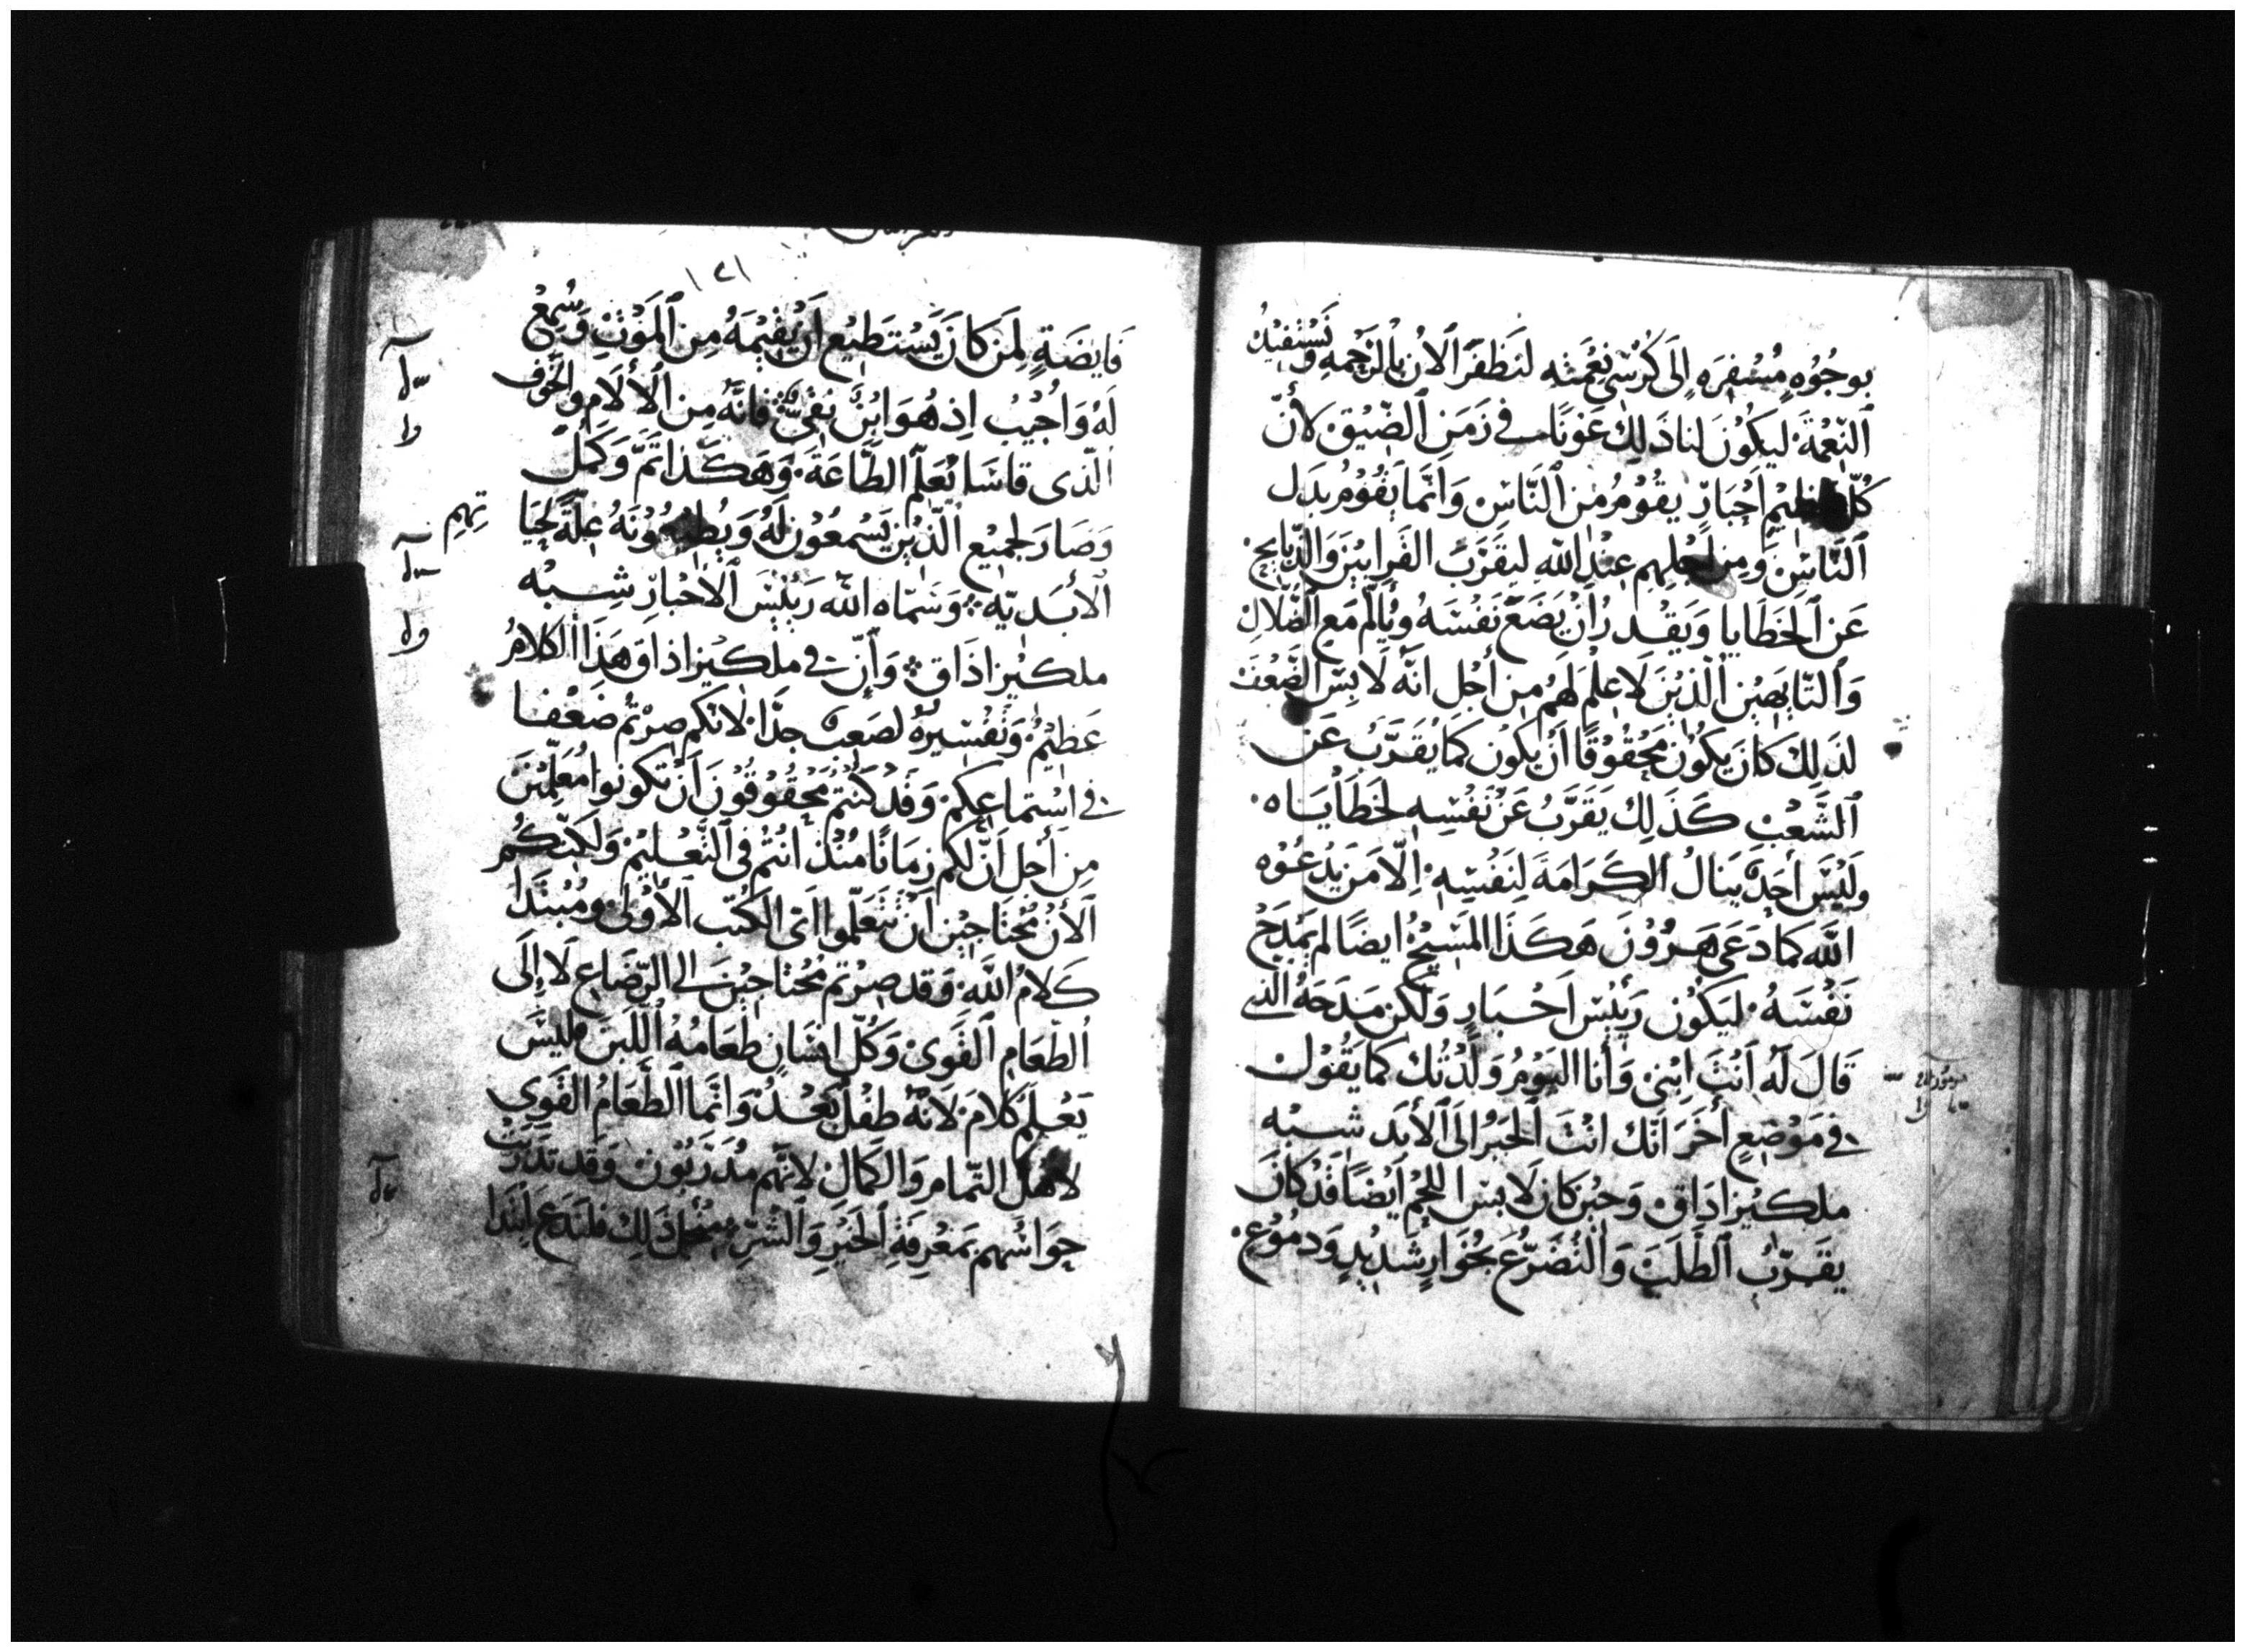 بوجُوُه مُسْفِرَه إلَى كُرْسَي نِعْمَته لنَظفَر الان بالرَحْمِه وَنَسْتَفيدُ
النِّعْمَةَ ليكُونَ لنا ذَلِك عَونًا في زَمَن الضّيْق لأنّ
كُلّ عظيم أحْبَارٍ يقوُمُ من النَّاسِ وَانَّما يَقُوُم بَدَل
النَّاسِ وَمِن اجْلِهِم عِنْد الله ليقَرّبَ القَرابيْنَ وَالذّبَايح
عَن الخَطَايا وَيَقْدر أنْ يَضَعَ نَفْسَهُ وَيُالمْ مَع الضُّلّال
وَالتّايهيْن الّذيْنَ لَا عِلْمَ لَهُم مِن أجْل انَّه لَابِسَ الضَّعْف
لذَلِكَ كانَ يكوُن مَحْقوُقًا أن يكون كمَا يُقَرّبُ عَن
الشَّعْب كَذَلِك يَقَرَّبُ عَنْ نَفْسِه لخَطَايَاه
ولَيْسَ أحَدٌ ينالُ الكَرَامَةَ لِنَفْسِهِ الّا مَن يَدْعُوْه
الله كما دَعَى هَرُوْنَ هَكَذَا المَسِيْح ايضًا لم يَمْدَحْ
نَفْسَهُ ليَكُوْن رَيْئسَ احْبَارٍ وَلَكن مَدَحَهُ الّذي
قَالَ لَه اَنْتَ ابْني وَأنا اليَوْمُ وَلَدْتُك كما يَقُوْل
في مَوْضِعٍ أخَرَ انّك انْتَ الحَبْرُ الَى الأبَد شِبْه
ملكيْزاداق وَحيْن كان لَابسَ اللحْم اَيْضًا قَدْ كَانَ
يقَرّبُ الطلَبَ وَالتَّضَرُّعَ بجُوَارٍ شَدْيدٍ وَدمُوُعٍ
١٢١
فَايضَةٍ لِمَن كانَ يَسْتَطيْع اَنْ يُقيْمَهُ مِن المَوْتِ وَسُمِعَ
لَهُ وَاجُيْبُ اِذ هُوَ ابْنٌ نقيٌّ فانّه مِن الألَام والخَوف
الّذى قاسَا تُعَلّم الطّاعَةَ وَهَكَذا تَمَّ وَكَمُل
وَصَارَ لجميْع الّذيْن يَسْمعُوْن لَهُ وَيُطيعُوْنَهُ عِلّةً لحَيَا
تِهِم
الأبَديّه وَسَمّاه اللّه رَيْئسَ الأحْبَارِ شِبْه
ملكيْزاذَاق وَأنّ في ملكيْزاذاق هَذَا الكلَامُ
عَظيْمُ وَتَفْسيْرهُ لصَعبٌ جدًّا لانكم صِرْتُم ضَعْفا
في اسْتماعِكم وَقَدْ كنتُم مَحْقُوقُونَ اَنْ تكونوا مُعَلّمِيْنَ
مِن أجْل أنّ لكم زمَانًا مُنْذ انْتُمْ في التَّعْلِيْم وَلَكِنّكُم
الأنْ مُحْتَاجيْن اَن تتَعَلّموا اتى الكُتب الأوْلَى وَمُبْتَدَا
كَلَامُ اللَّهِ وَقد صِرْتمُ مُحْتاجيْن الى الرّضَاعِ لَا إلَى
الطّعَامِ القَوىّ وَكُلّ انسَانٍ طعَامُهُ اللّبَن فليْسَ
يَعْلَم كَلامَ لَانّهُ طفْل بَعْدُ وَانّما الطَّعَامُ القَوي
لاهْل التّمام وَالكَمَال لانهّم مدَرَّبُون وَقد تَدَرَّبَتْ
حَوَاسّهم بمَعْرفَةِ الخَيْرِ وَالشّرّ مِن اجْل ذَلِك فلنَدَع ابْتدا